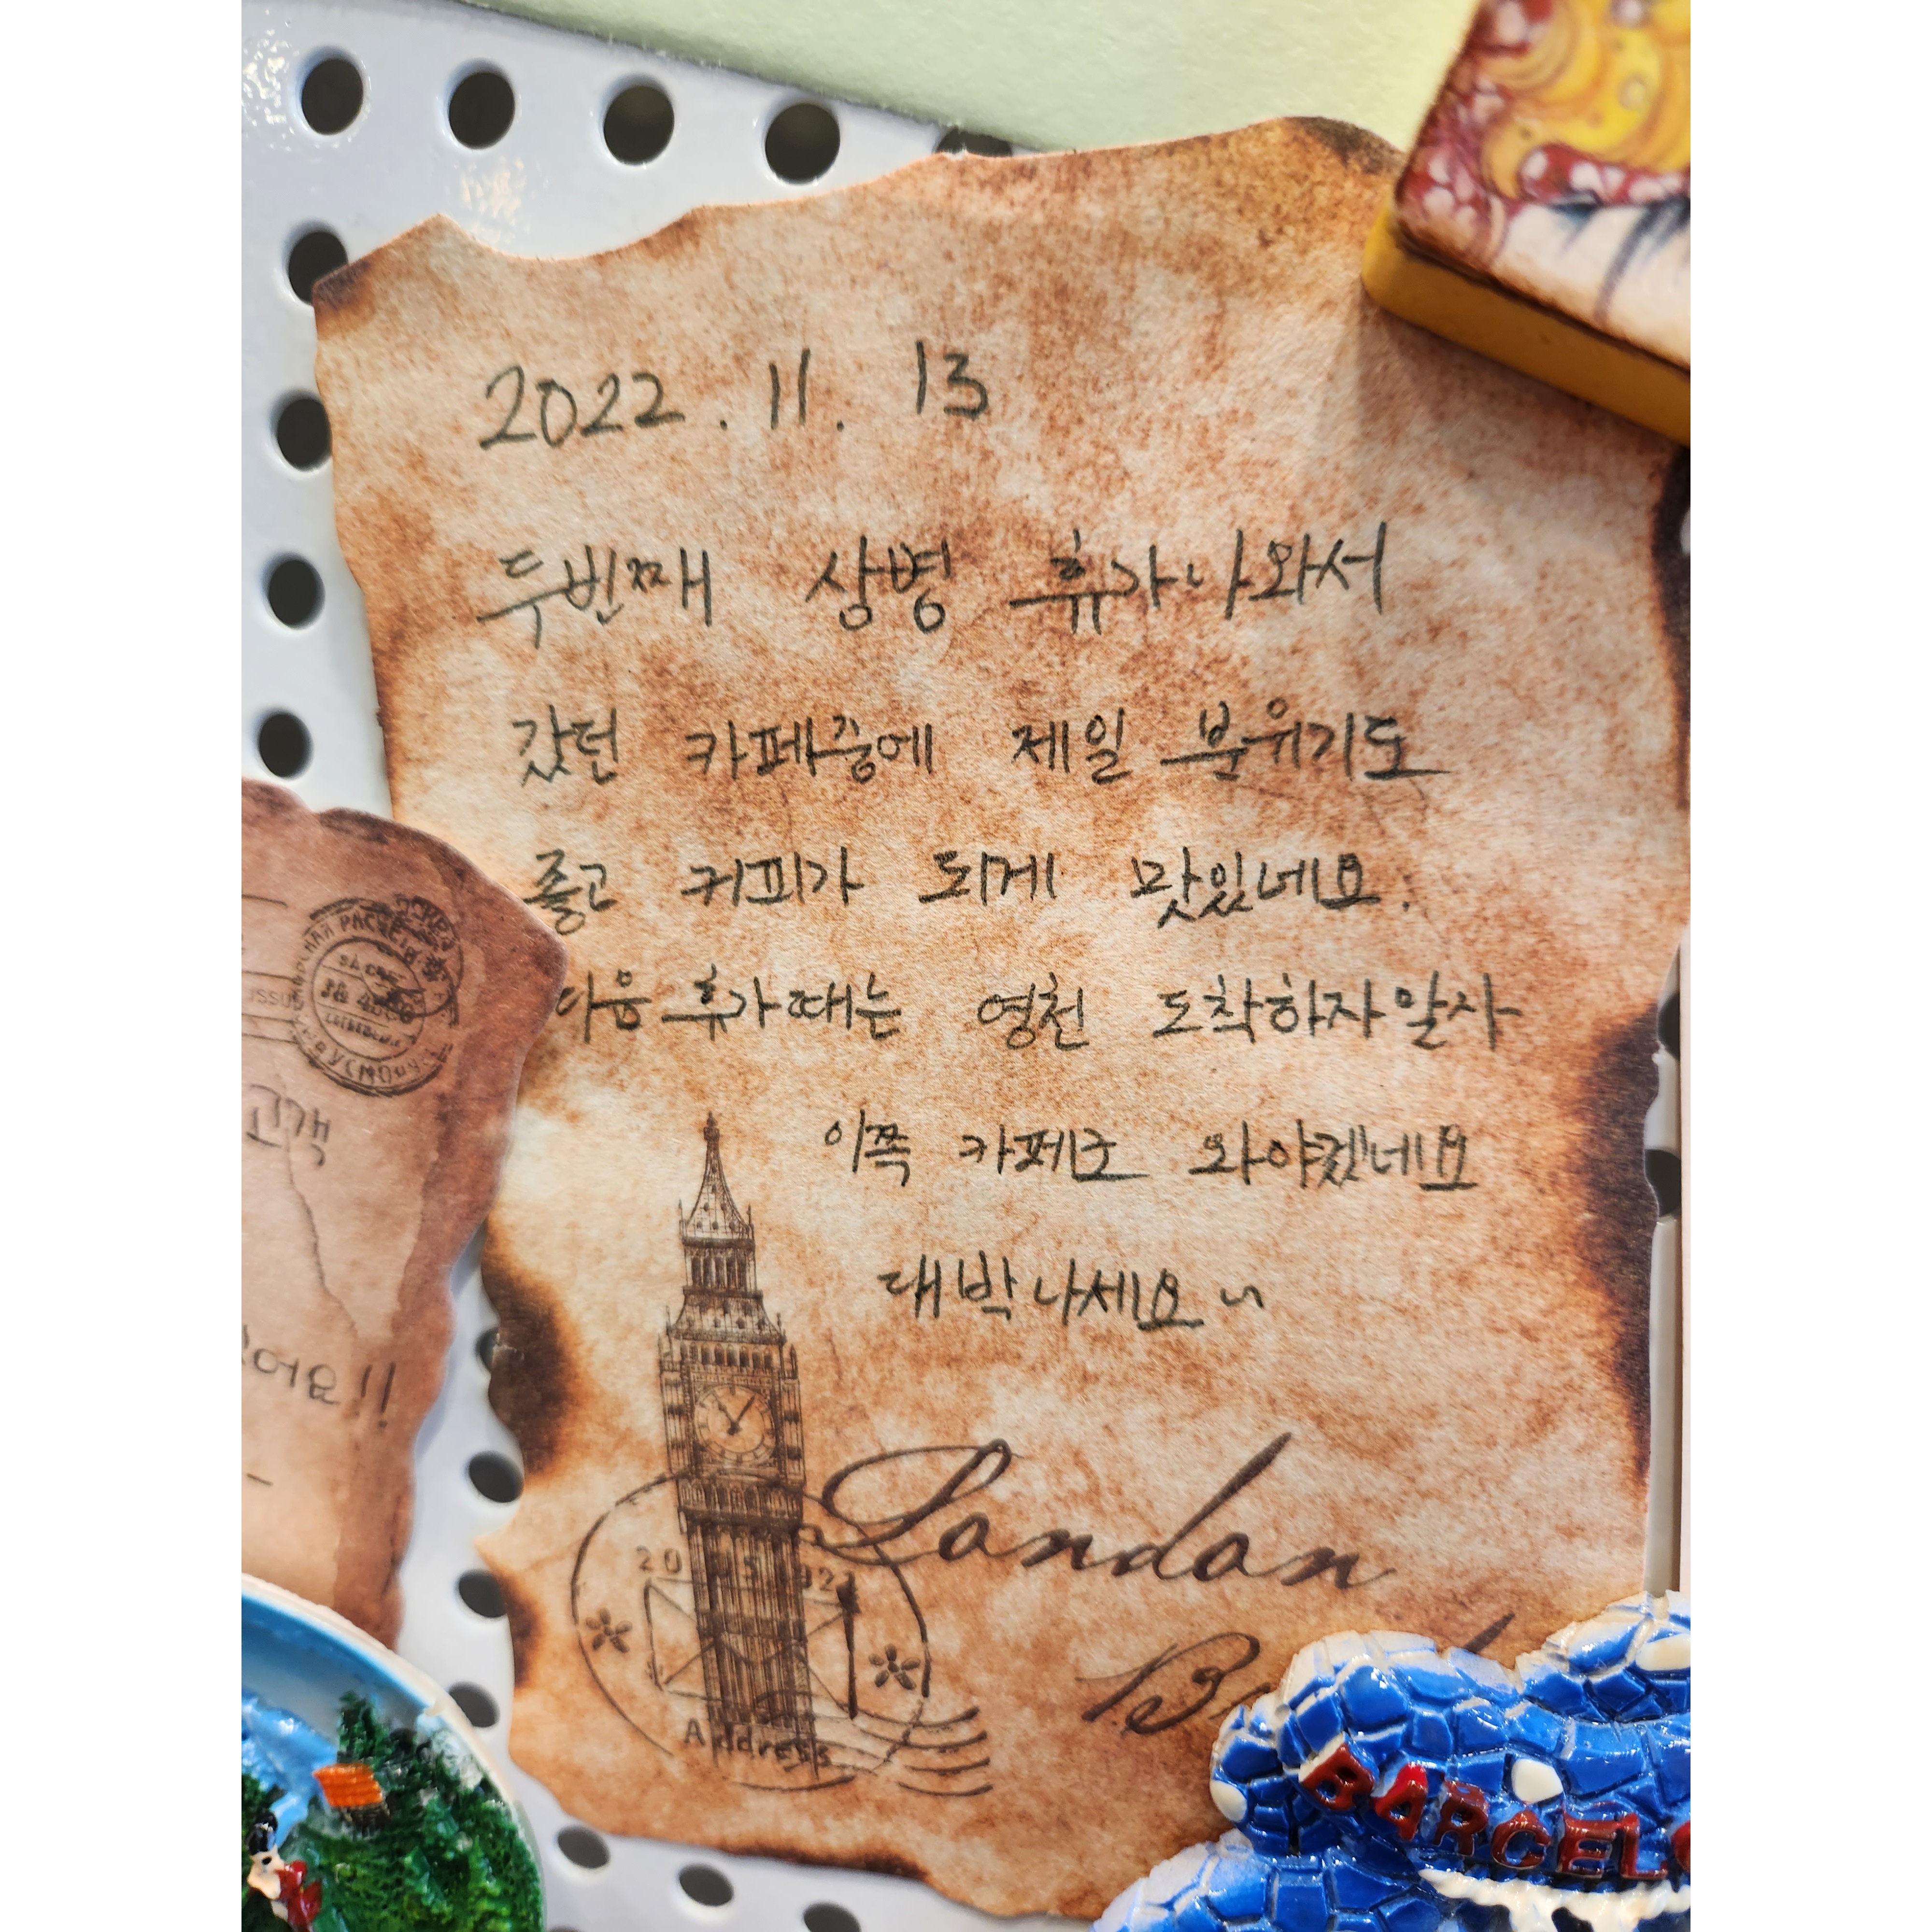 2022. 11. 13
두번째 상병 휴가나와서
갔던 카페중에 제일 분위기도
좋고 커피가 되게 맛있네요.
다음 휴가때는 영천 도착하자말자
이쪽 카페로 와야겠네요
대박나세요~
London
Address
고객
어요!!
BARCEL